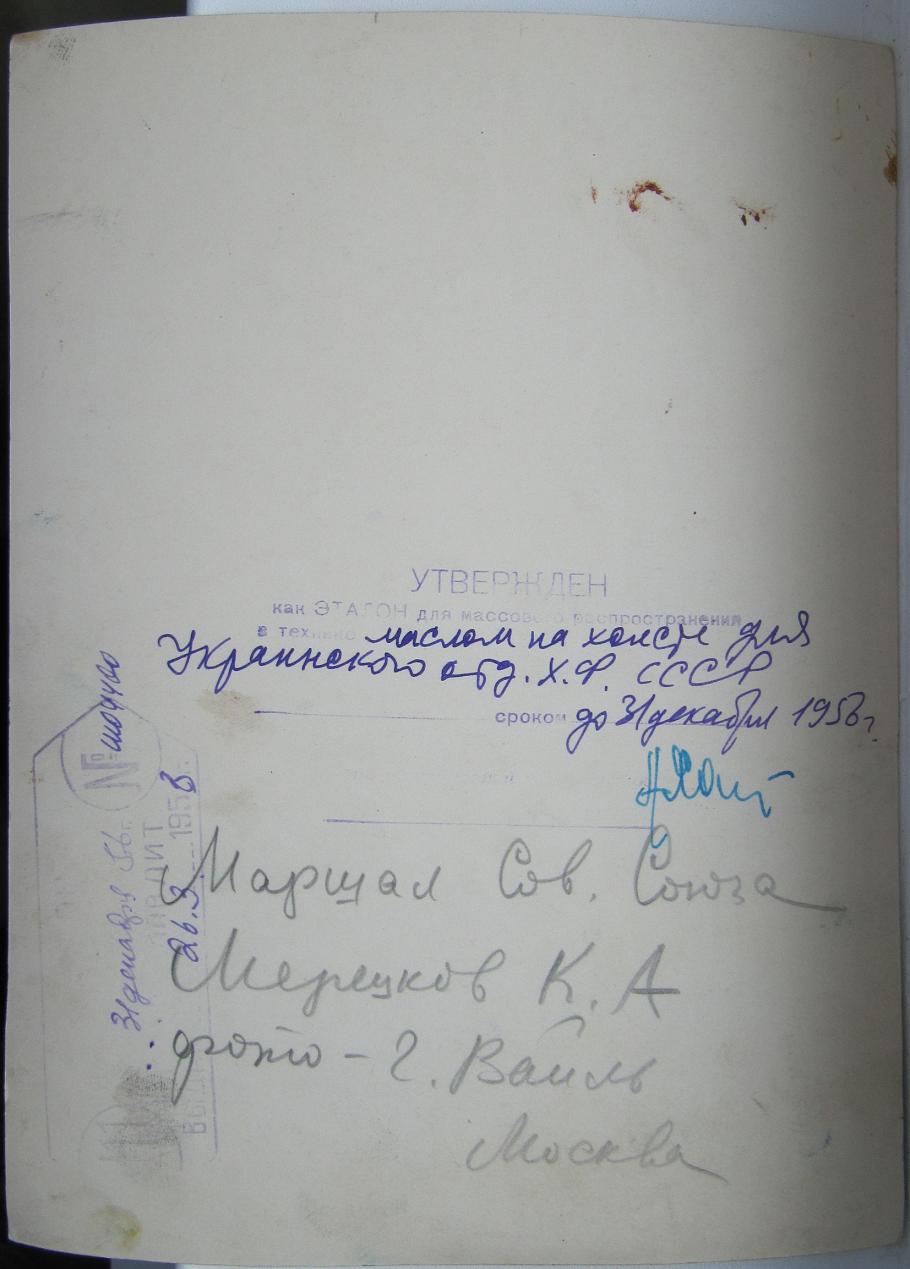 УТВЕРЖДЕН
как ЭТАЛОН для массового распространения
в технике маслом на холсте для
Украинского отд. Х.Ф. СССР
сроком до 31 декабря 1956 г.
Маршал Сов. Союза
Мерецков К. А
фото - Г. Вайль
Москва
№
31 декабря 56 г.
26.3. 1956